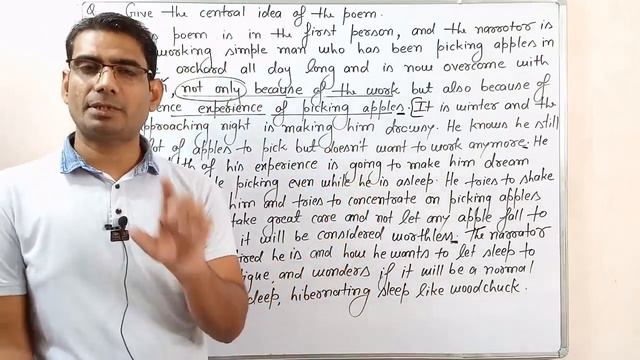 Q Give the central idea of the poem.
s poem is in the first person, and the narrator is
working simple man who has been picking apples in
orchard all day long and is now overcome with
, not only because of the work but also because of
ence experience of picking apples. It is winter and the
pproaching night is making him drowsy. He knows he still
lot of apples to pick but doesn't want to work anymore. He
of his experience is going to make him dream
le picking even while he is asleep. He tries to shake
him and tries to concentrate on picking apples
take great care and not let any apple fall to
it will be considered worthless. The narrator
ired he is and how he wants to let sleep to
tigue, and wonders if it will be a normal
deep, hibernating sleep like woodchuck.